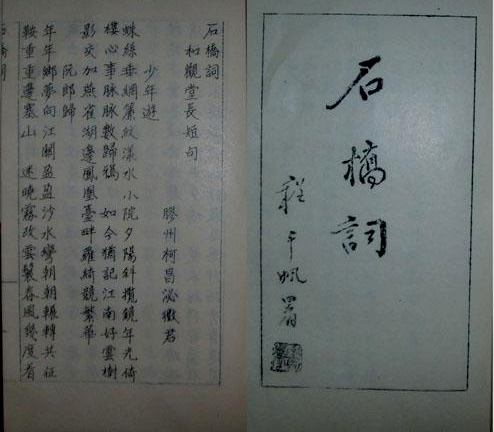 石橋詞
程千帆署
石橋詞
和觀堂長短句
膠州柯昌泌徽君
少年遊
蛛絲垂網簾紋漾水小院夕陽斜攬鏡年光倚
樓心事脉脉數歸鴉 如今猶記江南好雲樹
影交加燕雀湖邊鳳凰臺畔羅綺競繁華
阮郎歸
年年鄉夢向江關盈盈沙水彎朝朝輾轉共征
鞍重重邊塞山 迷曉霧改雲鬟春風幾度看